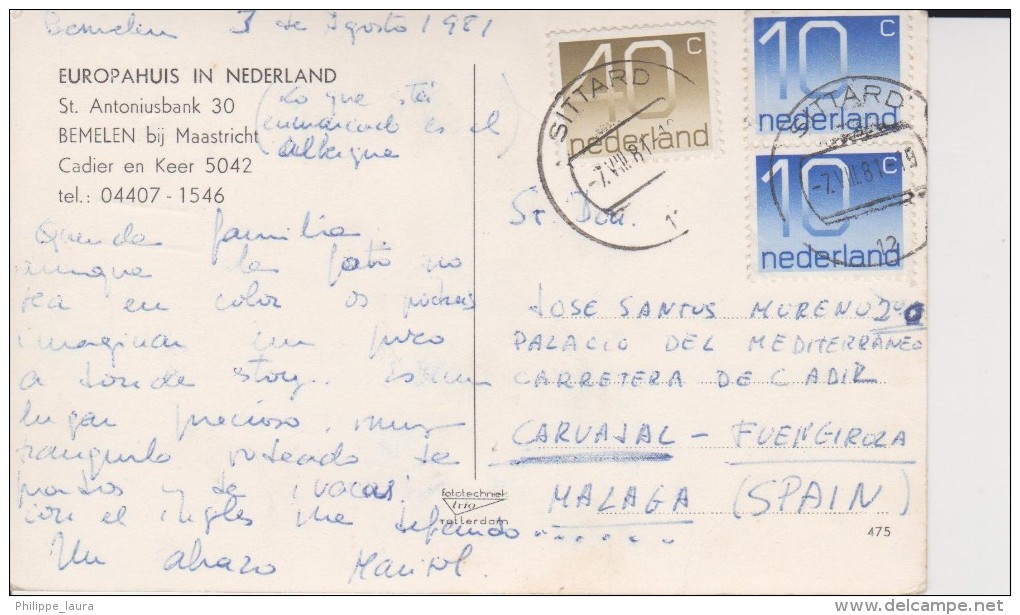 Bemelen 3 de Agosto 1981
EUROPAHUIS IN NEDERLAND
St. Antoniusbank 30
BEMELEN bij Maastricht
Cadier en Keer 5042
tel.: 04407 - 1546
(Lo que está
enmarcado es el
albergue)
Querida familia
aunque la foto no
sea en color os podeis
imaginar un poco
a donde estoy.. Es un
lugar precioso, muy
tranquilo rodeado de
prados y de ¡vacas!
con el ingles me defiendo........
Un abrazo Marisol.
40 c
nederland
10 c
nederland
10 c
nederland
SITTARD
-7.VIII.81
SITTARD
-7.VIII.81-19
12
Sr. Don.
JOSE SANTOS MORENO
PALACIO DEL MEDITERRÁNEO
CARRETERA DE CADIZ
CARVAJAL - FUENGIROLA
MALAGA (SPAIN)
fototechniek
trio
rotterdam
475
Philippe_laura
http://www.delcampe.net